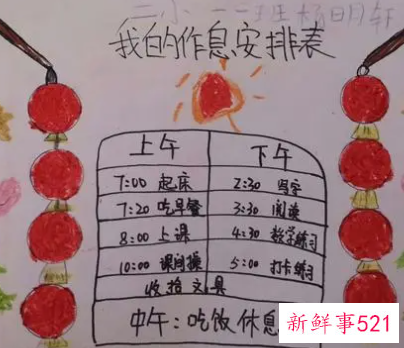 二小一一班杨明轩
我的作息安排表
上午 下午
7:00 起床 2:30 写字
7:20 吃早餐 3:30 阅读
8:00 上课 4:30 数学练习
10:00 课间操 5:00 打卡练习
收拾文具
中午:吃饭休息
新鲜事521